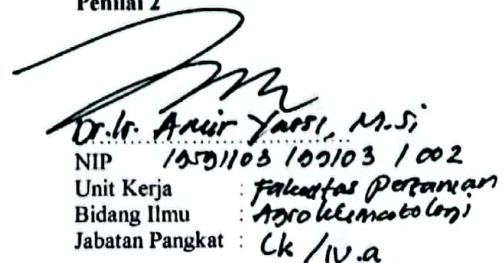 Penilai 2
Dr. Ir. Amir Yassi, M.Si
NIP 19591103 199103 1 002
Unit Kerja : Fakultas Pertanian
Bidang Ilmu : Agroklimatologi
Jabatan Pangkat : Lk / IV.a